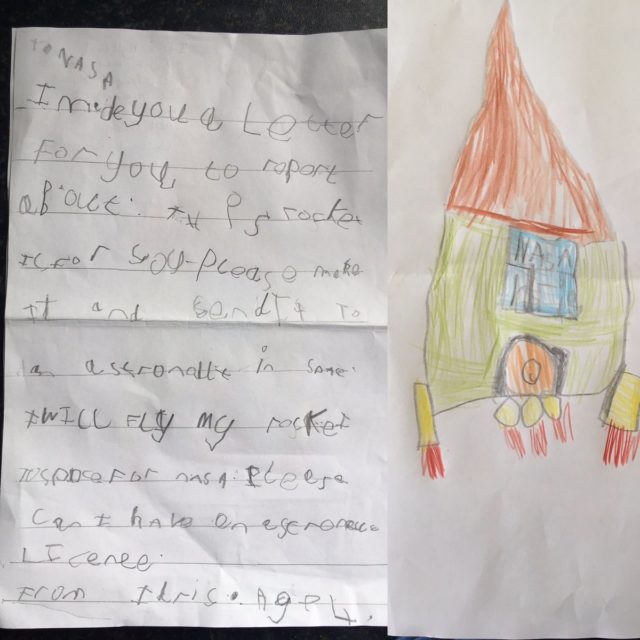 To NASA
I made you a Letter
For you to report
about: it Ps rocket
IS FOR you. please make
it and send It to
an astronatte in some.
I WILL FLY My rocket
to space For nasa please
can I have an
LIcence.
From Idris. Age 4.
NASA